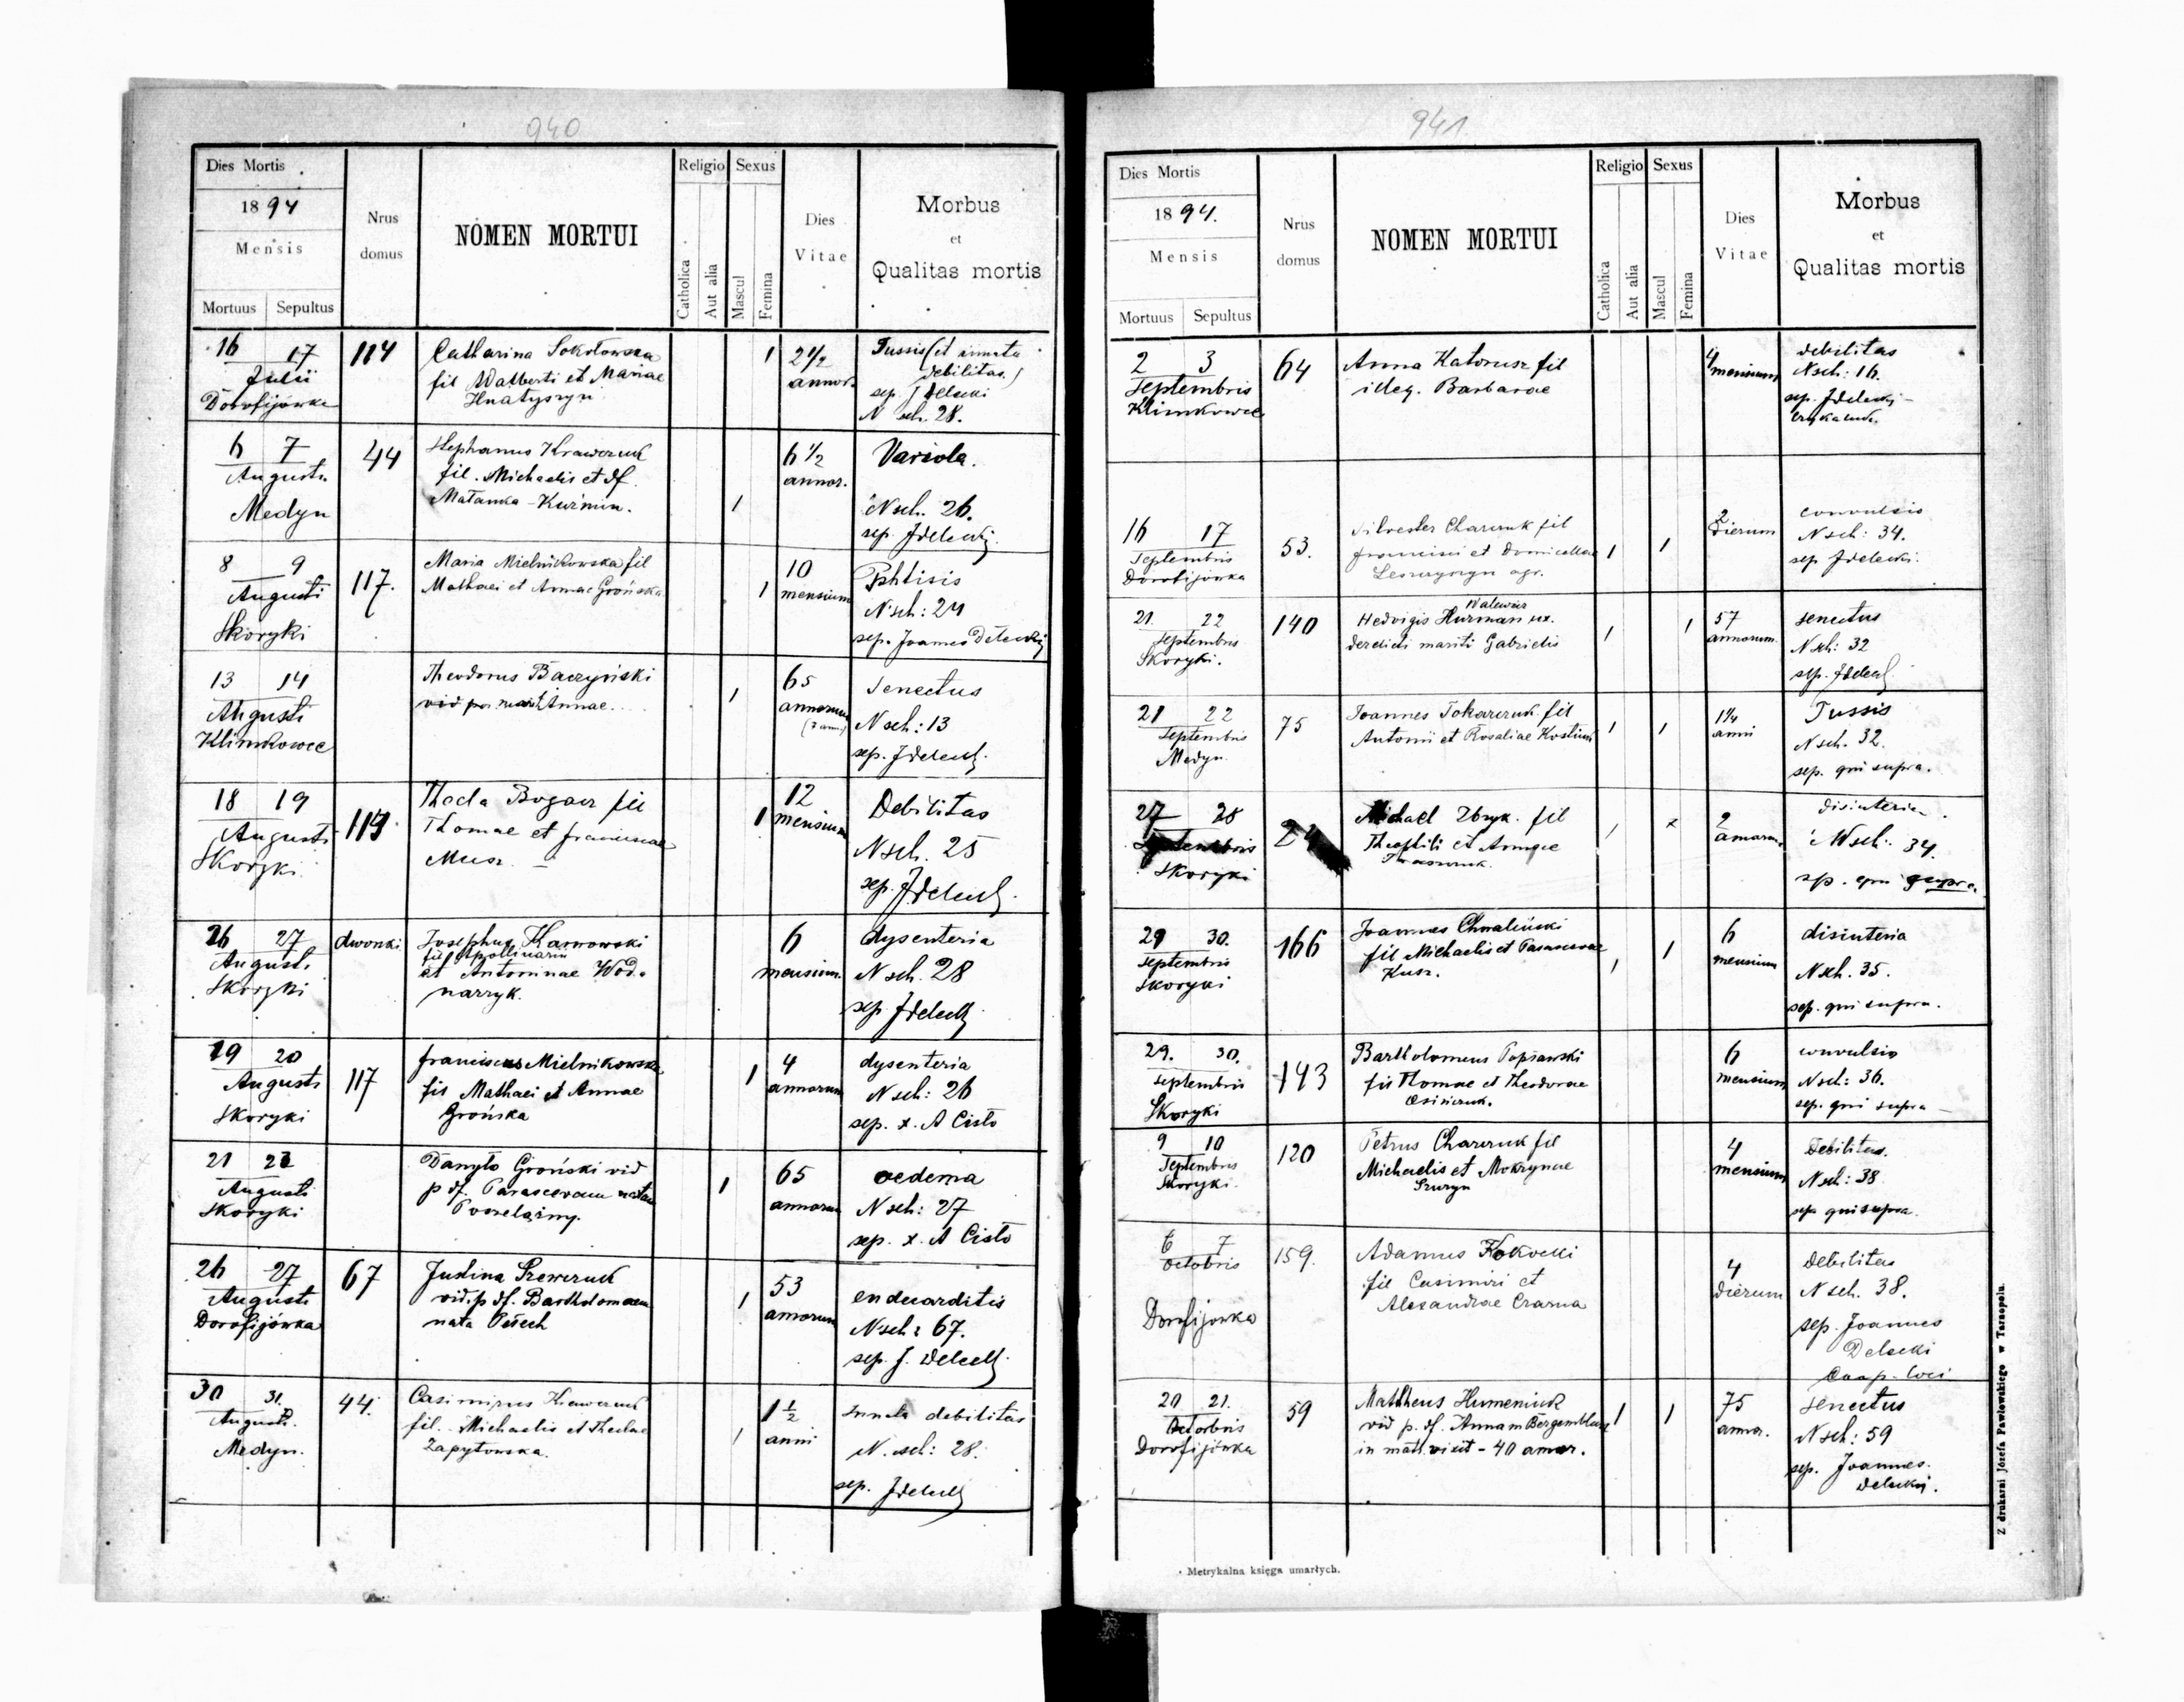 940
Dies Mortis
1894
Mensis
Mortuus Sepultus
Nrus domus
NOMEN MORTUI
Religio
Catholica
Aut alia
Sexus
Mascul
Femina
Dies Vitae
Morbus
et
Qualitas mortis
16 17 114 Catharina Sokołowska 1 2 1/2 Tussis (et innata
Julii fil Walberti et Mariae annor. debilitas.)
Dorofijówka Hnatyszyn sep J Delecki
N sch. 28.
6 7 44 Stephanus Krawczuk 6 1/2 Variola.
Augusti fil. Michaelis et df. annor.
Medyn Matanka - Kuźmin. 1 N sch. 26.
sep. JDelecki
8 9 117. Maria Mielnikowska fil 1 10 Pphtisis
Augusti Mathaei et Annae Grońska mensium N sch: 24
Skoryki sep. Joannes Delecki
13 14 Theodorus Baczyński 1 65 Senectus
Augusti Annae annorum N sch: 13
Klimkowce sep. JDelecki
18 19 119 Thecla Bogacz fil 1 12 Debilitas
Augusti Thomae et franciscae mensium N sch. 25
Skoryki Musz sep. JDelecki
26 27 dwonki Josephus Karnowski 6 dysenteria
Augusti fil Apollinaris mensium. N sch. 28
Skoryki et Antoninae Wod- sep JDelecki
narzyk.
19 20 117 franciscus Mielnikowska 1 4 dysenteria
Augusti fil Mathaei et Annae annorum N sch: 26
Skoryki Grońska sep. x. A Cisło
21 22 Danyło Groński vid 1 65 oedema
Augusti p df. Parascevam natam annorum N sch: 27
Skoryki sep. x. A Cisło
26 27 67 Justina Szewczuk 1 53 enducarditis
Augusti vid. p df. Bartholomaeum annorum N sch: 67.
Dorofijówka nata sep. J. Delecki
30 31. 44. Casimirus Krawczuk 1 1 1/2 Innata debilitas
Augusti. fil. Michaelis et Theclae anni N. sch: 28.
Medyn. Zapytowska. sep. JDelecki
941
Dies Mortis
1894.
Mensis
Mortuus Sepultus
Nrus domus
NOMEN MORTUI
Religio
Catholica
Aut alia
Sexus
Mascul
Femina
Dies Vitae
Morbus
et
Qualitas mortis
2 3 64 Anna Katorusz fil 4 debilitas
Septembris illeg. Barbarae mensium N sch: 16.
Klimkowce sep. JDelecki
16 17 53. Silvester Charczuk fil 1 1 2 convulsio
Septembris francisci et Domicellae dierum N sch: 34.
Dorofijówka agr. sep JDelecki.
21. 22 140 Hedvigis Hurman ux. 1 1 57 senectus
Septembris derelicti mariti Gabrielis annorum. N sch: 32
Skoryki. sep. JDelecki
21 22 75 Joannes Tokarczuk fil 1 1 1 1/4 Tussis
Septembris Antonii et Rosaliae Kostiuk anni N sch. 32.
Medyn sep. qui supra.
27 28 24 Michael Zbryk. fil 1 x 2 disinteria.
Septembris Theophili et Annae annorum. N sch. 34.
Skoryki sep. qui supra.
29 30. 166 Joannes Chwaliński 1 1 6 disinteria
Septembris fil Michaelis et Parascevae mensium N sch. 35.
Skoryki Kusz. sep. qui supra.
29. 30. 143 Bartholomeus Popławski 6 convulsio
Septembris fil Thomae et Theodorae mensium N sch: 36.
Skoryki sep. qui supra
9 10 120 Petrus Charczuk fil 4 Debilitas.
Septembris Michaelis et Mokrynae mensium N sch: 38
Skoryki. sep qui supra.
6 7 159. Adamus Kokocki 4 Debilitas
Octobris fil Casimiri et dierum N sch. 38.
Dorofijówka Alexandrae Czarna sep. Joannes
Delecki
Coop. loci
20 21. 59 Mattheus Humeniuk 1 1 75 senectus
Octobris vid p. df. Annam annor. N sch: 59
Dorofijówka in matr. vixit - 40 annor. sep. Joannes
Delecki.
Metrykalna księga umarłych.
Z drukarni Józefa Pawłowskiego w Tarnopolu.